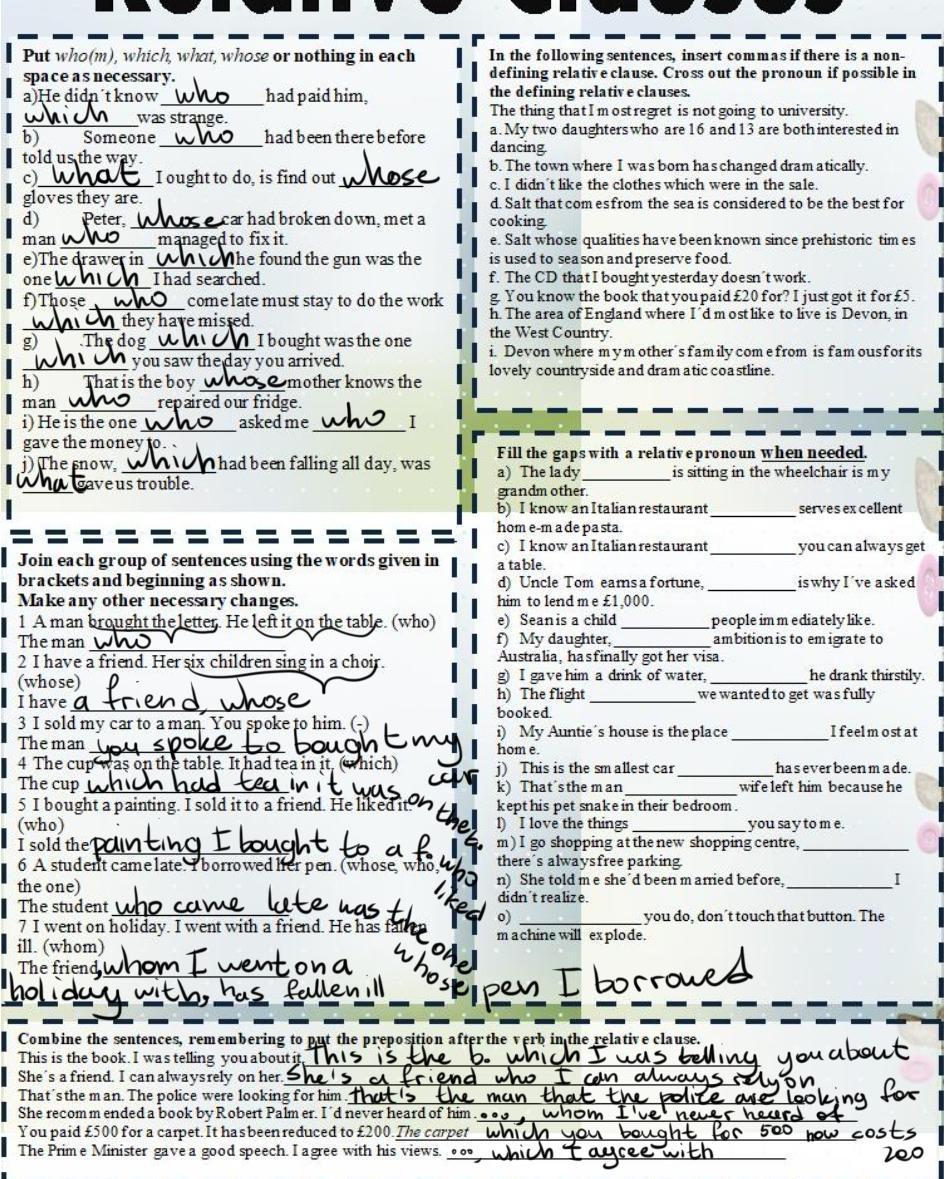 Relative Clauses
Put who(m), which, what, whose or nothing in each
space as necessary.
a)He didn´t know who had paid him,
which was strange.
b) Someone who had been there before
told us the way.
c) what I ought to do, is find out whose
gloves they are.
d) Peter, whose car had broken down, met a
man who managed to fix it.
e)The drawer in which he found the gun was the
one which I had searched.
f)Those who come late must stay to do the work
which they have missed.
g) .The dog which I bought was the one
which you saw the day you arrived.
h) That is the boy whose mother knows the
man who repaired our fridge.
i) He is the one who asked me who I
gave the money to.
j) The snow, which had been falling all day, was
what gave us trouble.
In the following sentences, insert commas if there is a non-
defining relative clause. Cross out the pronoun if possible in
the defining relative clauses.
The thing that I most regret is not going to university.
a. My two daughters who are 16 and 13 are both interested in
dancing.
b. The town where I was born has changed dramatically.
c. I didn´t like the clothes which were in the sale.
d. Salt that comes from the sea is considered to be the best for
cooking.
e. Salt whose qualities have been known since prehistoric times
is used to season and preserve food.
f. The CD that I bought yesterday doesn´t work.
g. You know the book that you paid £20 for? I just got it for £5.
h. The area of England where I´d most like to live is Devon, in
the West Country.
i. Devon where my mother´s family come from is famous for its
lovely countryside and dramatic coastline.
Join each group of sentences using the words given in
brackets and beginning as shown.
Make any other necessary changes.
1 A man brought the letter. He left it on the table. (who)
The man who
2 I have a friend. Her six children sing in a choir.
(whose)
I have a friend, whose
3 I sold my car to a man. You spoke to him. (-)
The man you spoke to bought my car
4 The cup was on the table. It had tea in it. (which)
The cup which had tea in it was on the t.
5 I bought a painting. I sold it to a friend. He liked it.
(who)
I sold the painting I bought to a f. who liked
6 A student came late. I borrowed her pen. (whose, who,
the one)
The student who came late was the one whose pen I borrowed
7 I went on holiday. I went with a friend. He has fallen
ill. (whom)
The friend, whom I went on a
holiday with, has fallen ill
Fill the gaps with a relative pronoun when needed.
a) The lady ____ is sitting in the wheelchair is my
grandmother.
b) I know an Italian restaurant ____ serves excellent
home-made pasta.
c) I know an Italian restaurant ____ you can always get
a table.
d) Uncle Tom earns a fortune, ____ is why I´ve asked
him to lend me £1,000.
e) Sean is a child ____ people immediately like.
f) My daughter, ____ ambition is to emigrate to
Australia, has finally got her visa.
g) I gave him a drink of water, ____ he drank thirstily.
h) The flight ____ we wanted to get was fully
booked.
i) My Auntie´s house is the place ____ I feel most at
home.
j) This is the smallest car ____ has ever been made.
k) That´s the man ____ wife left him because he
kept his pet snake in their bedroom.
l) I love the things ____ you say to me.
m) I go shopping at the new shopping centre, ____
there´s always free parking.
n) She told me she´d been married before, ____ I
didn´t realize.
o) ____ you do, don´t touch that button. The
machine will explode.
Combine the sentences, remembering to put the preposition after the verb in the relative clause.
This is the book. I was telling you about it. This is the b. which I was telling you about
She´s a friend. I can always rely on her. She's a friend who I can always rely on
That´s the man. The police were looking for him. that's the man that the police are looking for
She recommended a book by Robert Palmer. I´d never heard of him. ..., whom I've never heard of
You paid £500 for a carpet. It has been reduced to £200. The carpet which you bought for 500 now costs 200
The Prime Minister gave a good speech. I agree with his views. ..., which I agree with